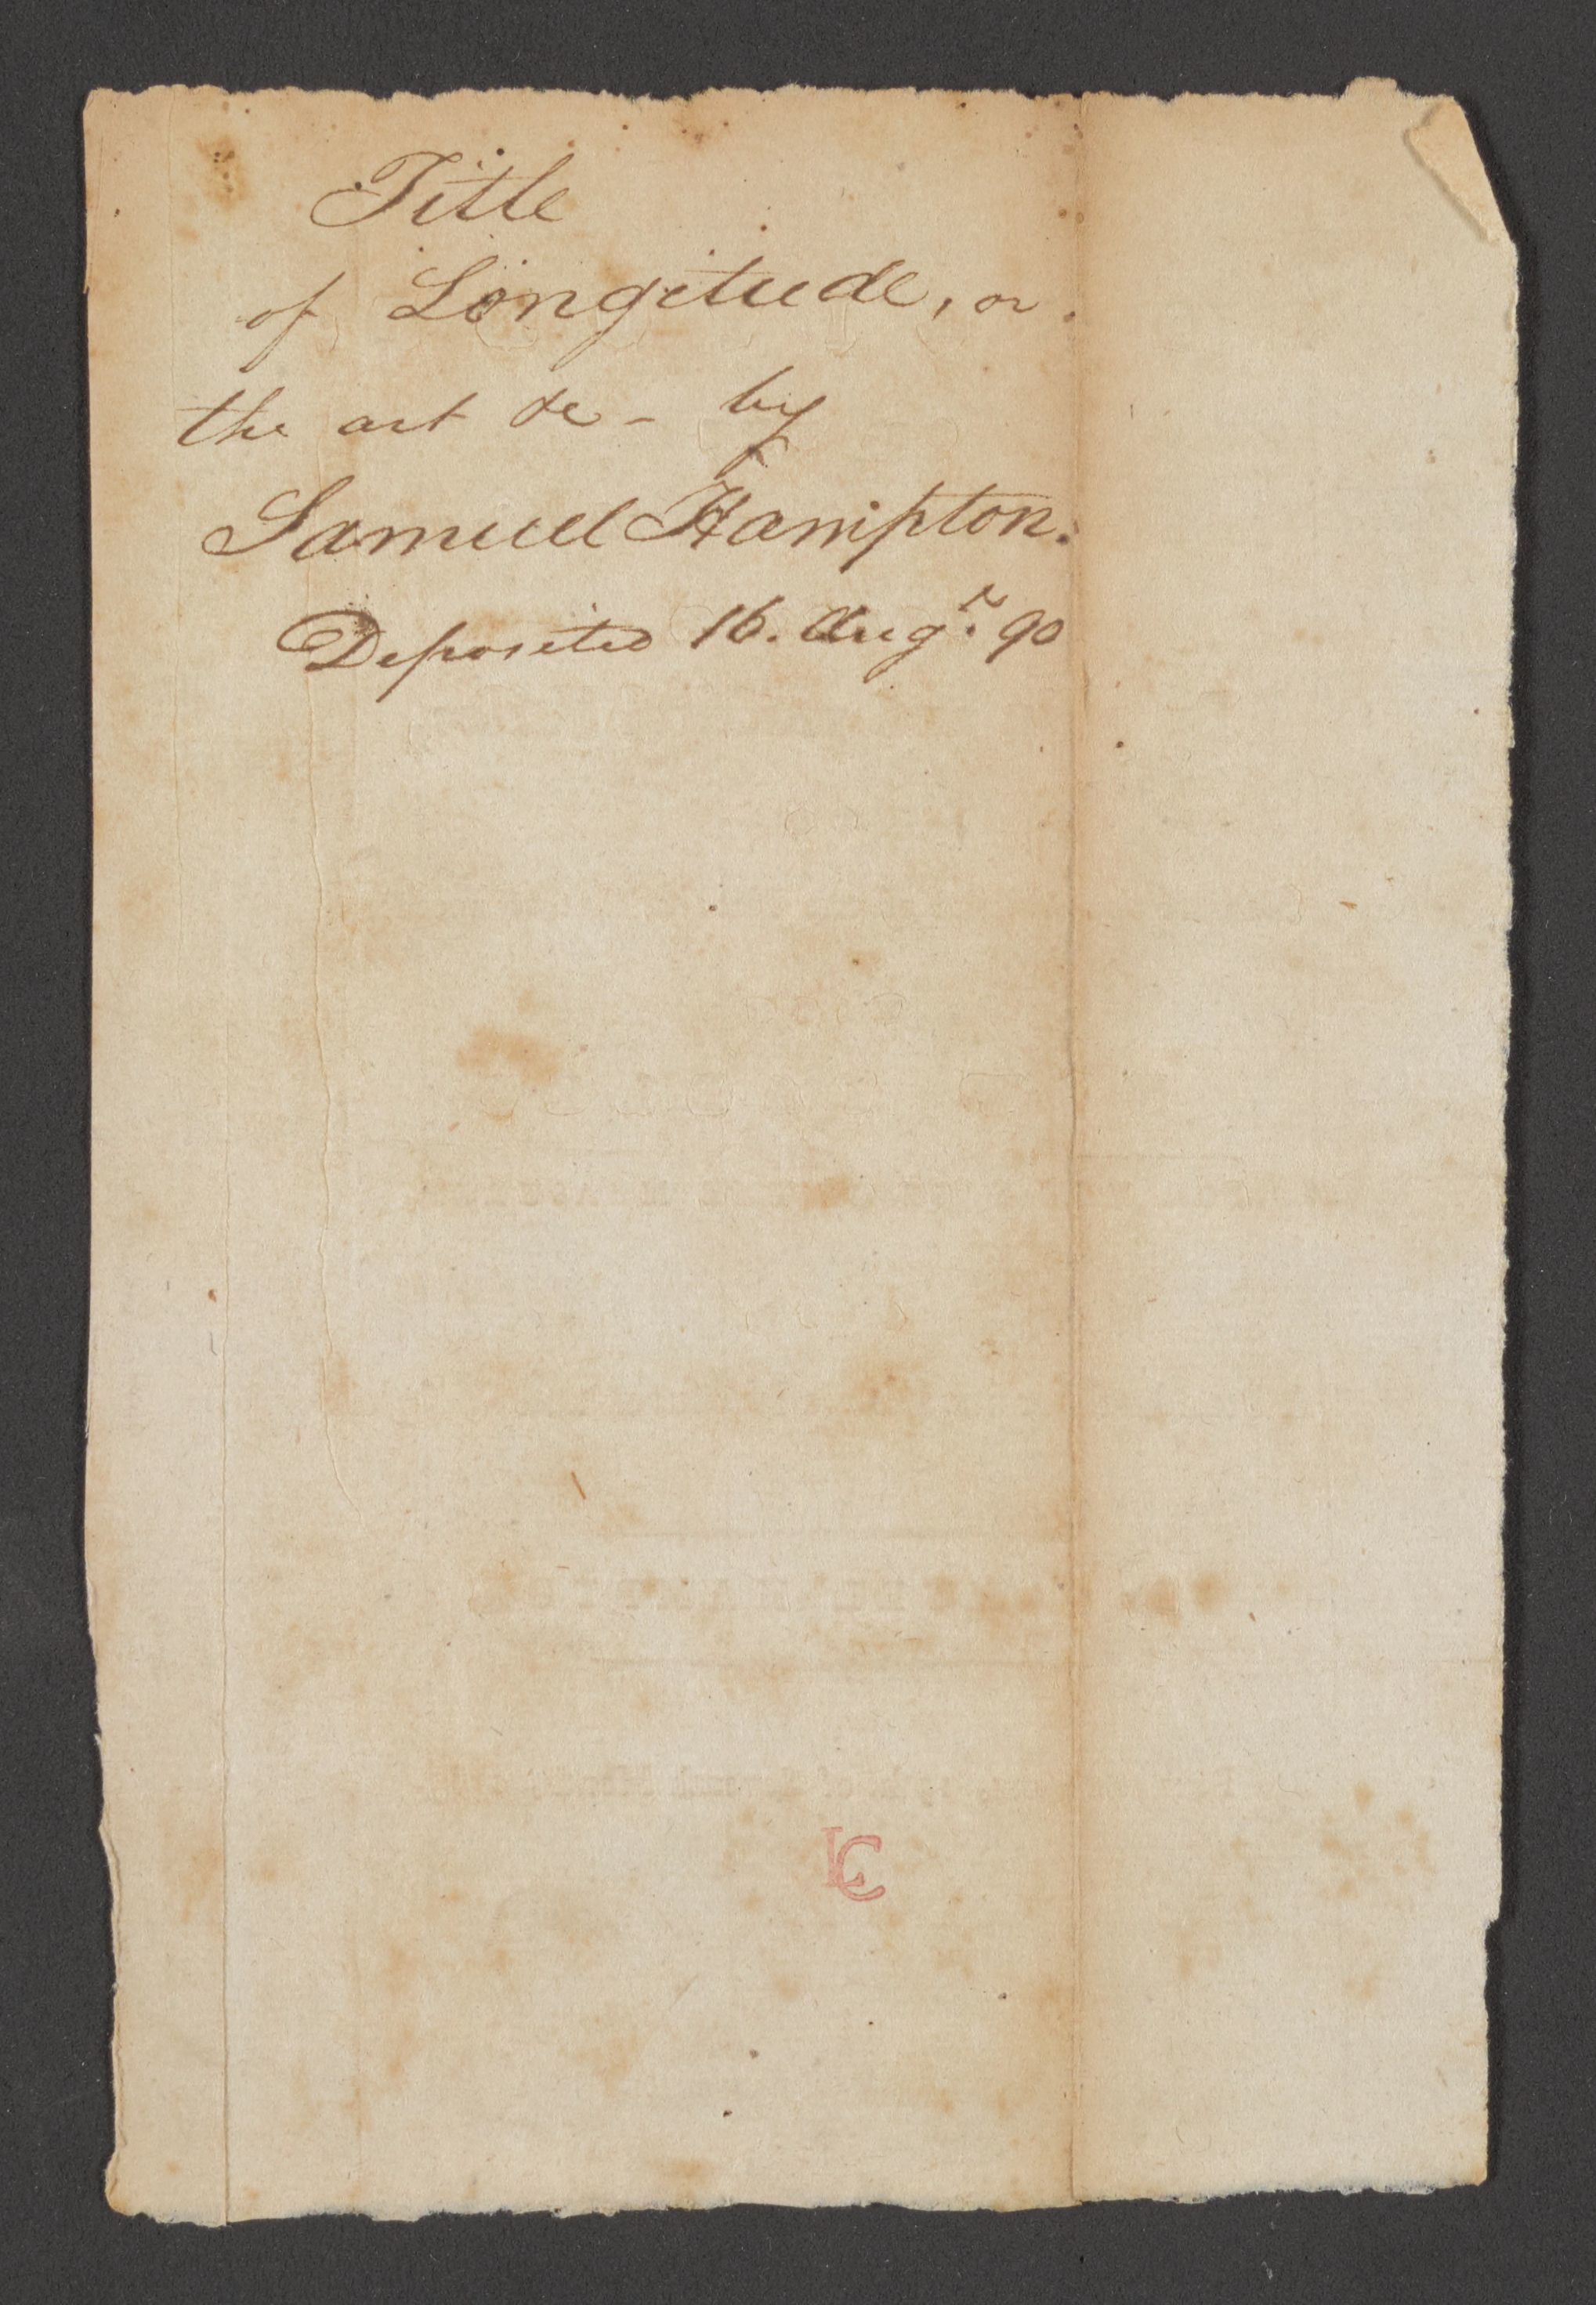 Title
of Longitude, or
the art &c - by
Samuel Hampton.
Deposited 16. Augt. 90
LC